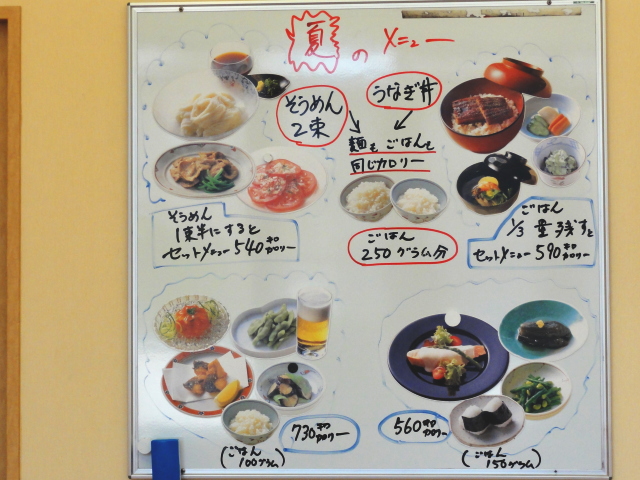 夏のメニュー
そうめん
2束
うなぎ丼
麺もごはんも
同じカロリー
ごはん
250グラム分
そうめん
1束半にすると
セットメニュー540キロカロリー
ごはん
1/3量残すと
セットメニュー590キロカロリー
730キロカロリー
(ごはん
100グラム)
560キロカロリー
(ごはん
150グラム)